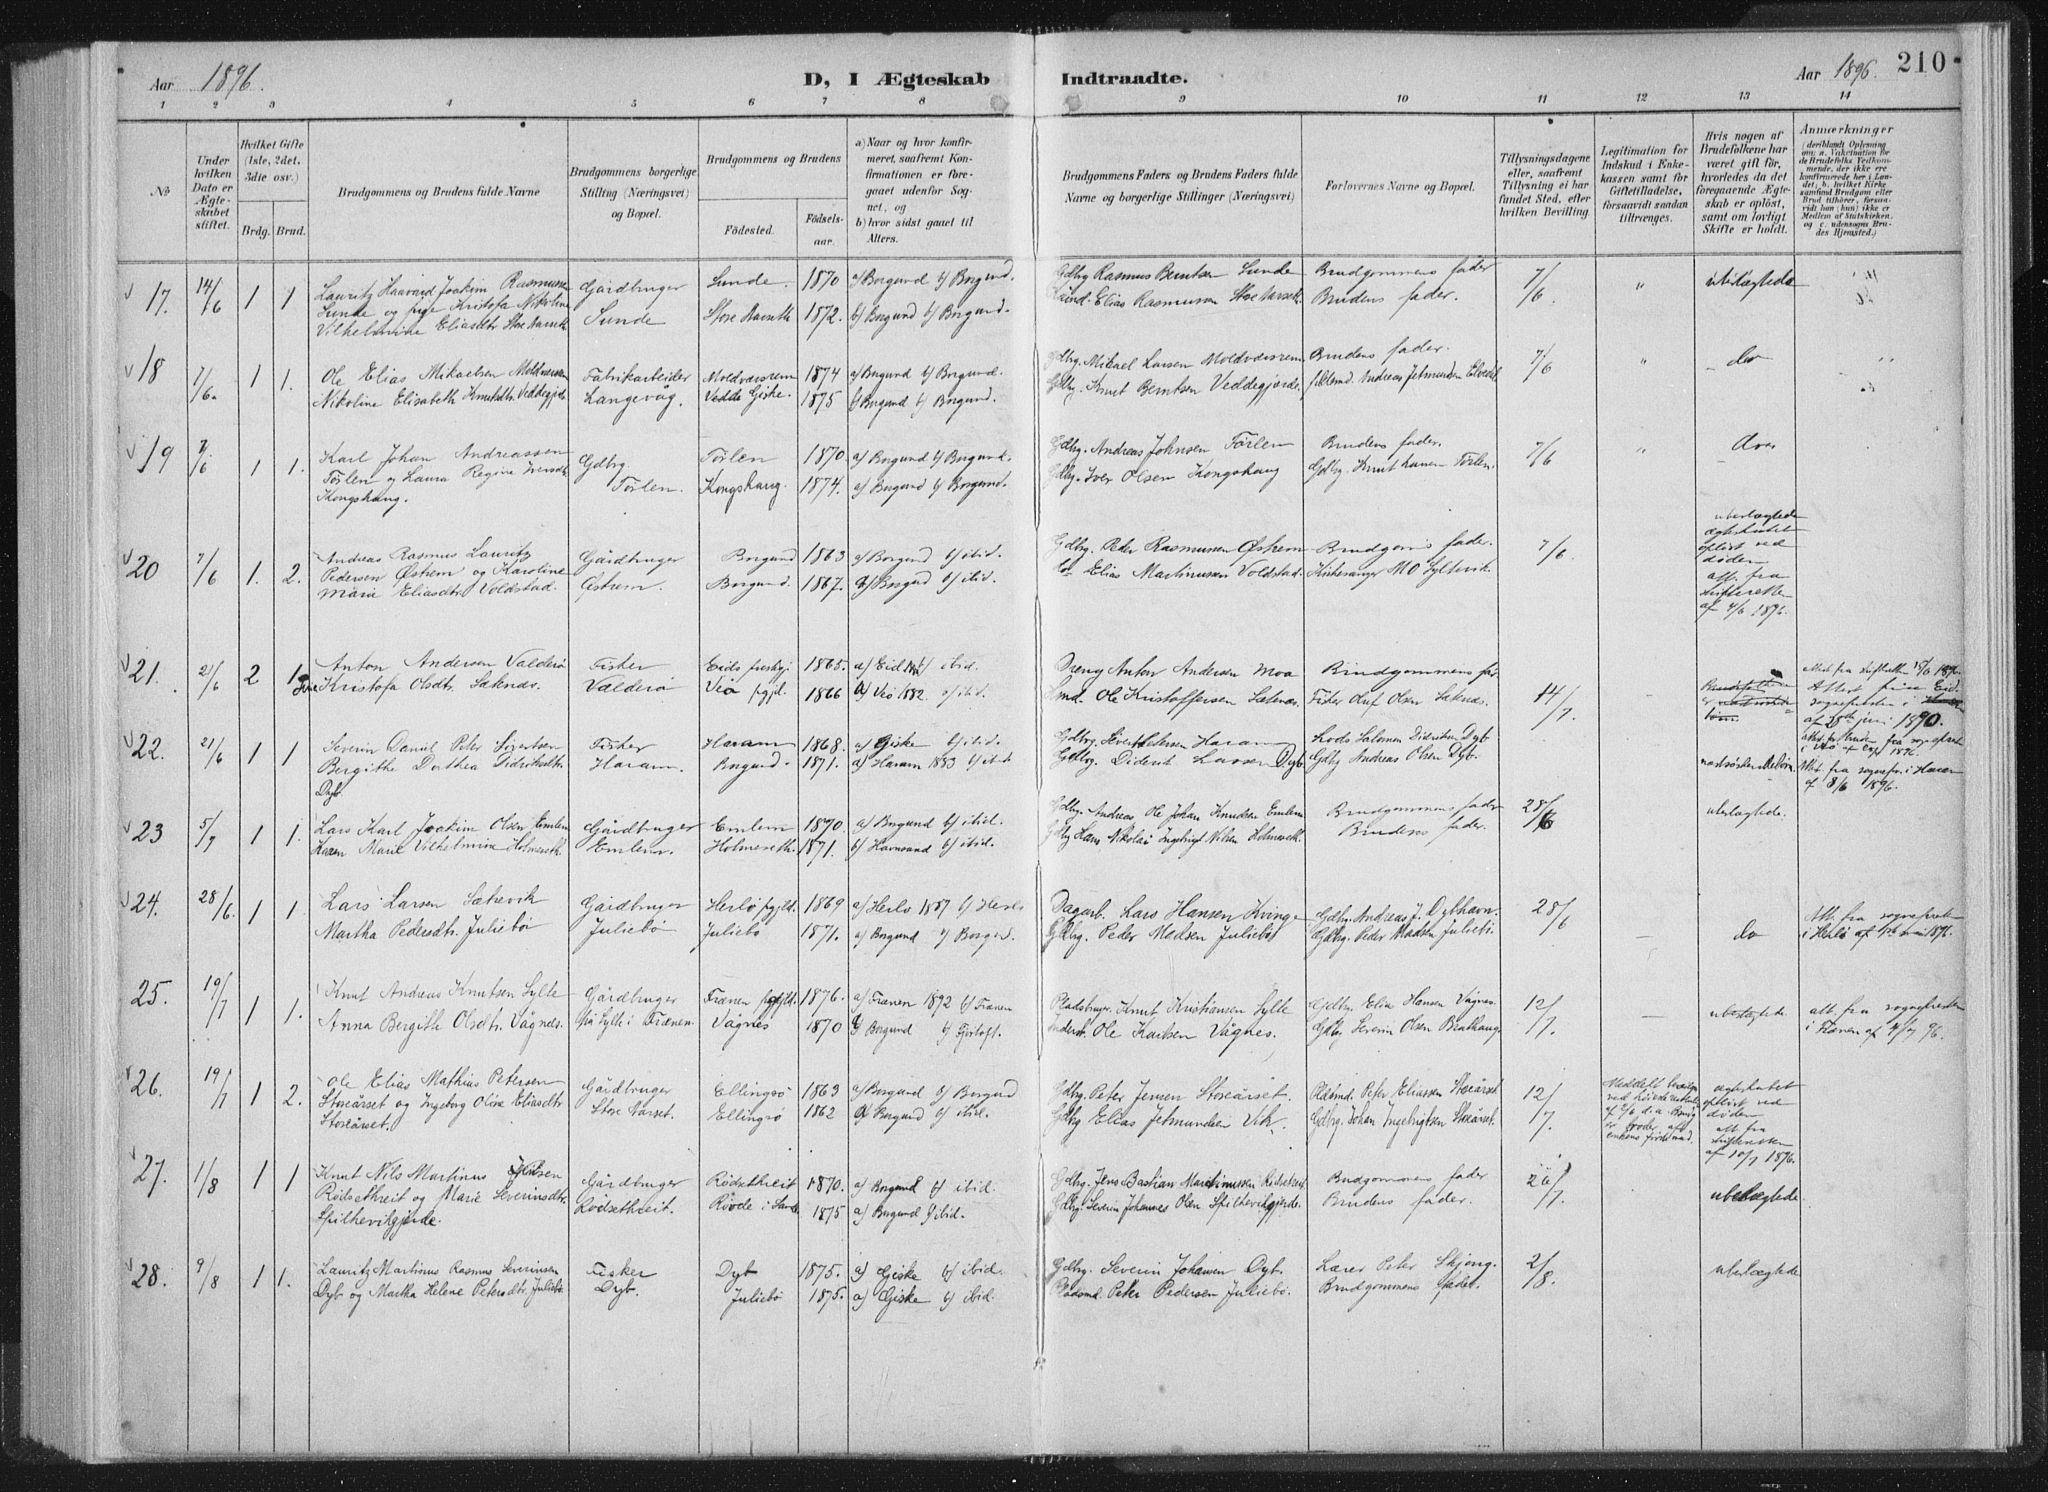 Aar 1896.
D, I Ægteskab Indtraadte.
Aar 1896. 210
1 2 3 4 5 6 7 8 9 10 11 12 13 14
No
Under hvilken Dato er Ægteskabet stiftet.
Hvilket Gifte (1ste, 2det, 3die osv.)
Brdg. Brud.
Brudgommens og Brudens fulde Navne
Brudgommens borgerlige Stilling (Næringsvei) og Bopæl.
Brudgommens og Brudens
Fødested. Fødselsaar.
a) Naar og hvor konfirmeret, saafremt Konfirmationen er foregaaet udenfor Sognet, og
b) hvor sidst gaaet til Alters.
Brudgommens Faders og Brudens Faders fulde Navne og borgerlige Stillinger (Næringsvei)
Forlovernes Navne og Bopæl.
Tillysningsdagene eller, saafremt Tillysning ei har fundet Sted, efter hvilken Bevilling.
Legitimation for Indskud i Enkekassen samt for Giftetilladelse, forsaavidt saadan tiltrænges.
Hvis nogen af Brudefolkene har været gift før, hvorledes da det foregaaende Ægteskab er opløst, samt om lovligt Skifte er holdt.
Anmærkninger (deriblandt Oplysning om: a. Vakcination for de Brudefolks Vedkommende, der ikke ere konfirmerede her i Landet; b. hvilket Kirkesamfund Brudgom eller Brud tilhører, forsaavidt han (hun) ikke er Medlem af Statskirken, og c. udensogns Brudes Hjemsted.)
17. 14/6 1 1 Lauritz Haavard Joakim Rasmussen Gårdbruger Sunde. 1870 a) Borgund b) Borgund. Gdbg Rasmus Berntsen Sunde Brudgommens fader 7/6 " ubeslægtede
Sunde og pige Kristofa Nikoline Sunde Store Aarseth 1872. b) Borgund b) Borgund. Elias Rasmusen Store Aarseth Brudens fader.
Vilhelmine Eliasdtr Store Aarseth
18 7/6. 1 1. Ole Elias Mikaelsen Moldværsrem Fabrikarbeider Moldværsrem 1874 a) Borgund b) Borgund. Gdbg. Mikael Larsen Moldværsrem Brudens fader. 7/6 " do
Nikoline Elisabeth Knutsdtr Veddegjerde Langevåg. Vedde Giske. 1875 b) Borgund b) Borgund. Gdbg. Knut Berntsen Veddegjerde. Andreas Jetmundsen
19 7/6 1 1. Karl Johan Andreassen Gdbrg. Tørlen 1870 a) Borgund b) Borgund. Gdbg. Andreas Johnsen Tørlen Brudens fader. 7/6 " do
Tørlen og Laura Regine Iversdtr Tørlen. Kongshaug. 1874. a) Borgund b) Borgund. Gdbg. Iver Olsen Kongshaug Gdbg. Knut Larsen Tørlen.
Kongshaug.
20 7/6 1. 2. Andreas Rasmus Lauritz Gårdbruger Borgund 1863 a) Borgund b) ibid. Gdbg. Peder Rasmussen Østrem Brudgoms fader. 7/6. ubeslægtede
Pedersen Østrem og Karoline Østrem. Borgund. 1867. a) Borgund b) ibid. do Elias Martinusen Voldstad. Kirkesanger M O Sylthvik. ægteskabet opløst ved døden
Marie Eliasdtr. Voldstad. att. fra skifteretten af 4/6 1896.
21. 21/6 2 1 Anton Andersen Valderø Fisker Eids præstgj 1865. a) Eid b) ibid. Dreng Anton Andersen Moa Brudgommens far 14/7. Attest fra skifteretten 15/6 1896.
Kristofa Olsdtr. Sæknæs. Valderø Veø pgjd. 1866 a) Veø 1882 b) ibid. Ole Kristoffersen Sæknæs. Fisker Oluf Olsen Sæknæs. Attest fra Eid sognepresten i af 28de juni 1890.
22. 21/6 1 1 Severin Daniel Peter Sivertsen Fisher Haram 1868. a) Giske b) ibid. Gdbg. Sivert Petersen Haram Lods Salomon Didriksen Dyb
Bergithe Dorthea Didriksdtr. Haram. Borgund. 1871. a) Haram 1883 b) ibid. Gdbg. Diderik Larsen Dyb. Gdbg Andreas Olsen Dyb. Att. fra sognepr. i Haram af 8/6 1896.
Dyb.
23 5/7 1 1. Lars Karl Joakim Olsen Emlem Gårdbruger Emlem 1870 a) Borgund b) ibid. Gdbg. Andreas Ole Johan Knudsen Emlem Brudgommens fader 28/6 ubeslægtede.
Karen Marie Vilhelmina Holmeseth. Emlem. Holmeseth. 1871. b) Havnsund b) ibid. Gdbg Hans Nikolai Ingebrigt Nilsen Holmeseth Brudens fader.
24. 28/6. 1 1. Lars Larsen Sætrevik Gårdbruger Herlø pgjld. 1869 a) Herlø 1887 b) Herlø Dagarb. Lars Hansen Kvinge Gdbg. Andreas J. Dybhavn. 28/6 — do Att. fra sognepresten
Martha Pedersdtr. Juliebø Juliebø Juliebø 1871. a) Borgund b) Borgund. Gdbg. Peder Madsen Juliebø Gdbg. Peder Madsen Juliebø. i Herlø af 1896.
25. 19/7 1 1. Knut Andreas Knutsen Sylte Gårdbruger Frænen pgjld. 1876. a) Frænen 1892 b) Frænen Pladsbruger Knut Kristiansen Sylte Gdbg. Elias Hansen Vågnes. 12/7. — ubeslægtede att. fra sognepresten
Anna Bergithe Olsdtr. Vågnes. på Sylte i Frænen. Vågnes 1870 b) Borgund b) Fjørtoft. Inderst Ole Karlsen Vågnes. Gdbg Severin Olsen Brathaug i Frænen af 4/7 96.
26. 19/7 1 2. Ole Elias Mathias Petersen Gårdbruger Ellingsø 1863 a) Borgund b) Borgund Gdbg. Peter Jensen Storeårset. Pladsmd. Peter Eliassen Storeårset 12/7. ægteskabet opløst ved døden
Storeårset og Ingeborg Oline Eliasdtr. Store Aarset. Ellingsø 1862 a) Borgund b) ibid. Gdbg Elias Jetmundsen Vik. Gdbg. Johan Ingebrigtsen Storeårset. er broder af enkens første mand. att. fra skifteretten
Storeårset. af 10/7 1896.
27. 1/8 1 1 Knut Nils Martinus Jensen Gårdbruger Rødsethreit 1870. a) Borgund b) ibid. Gdbg. Jens Bastian Martinussen Rødsetreit Brudgommens fader 26/7. ubeslægtede
Rødsethreit og Marie Severinsdtr. Rødsethreit. Røvde i Sande 1875 a) Borgund b) ibid. Gdbg. Severin Johannes Olsen Spilhevikgjerde. Brudens fader.
Spilhevikgjerde.
28. 9/8 1 1. Lauritz Martinus Rasmus Severinsen Fisker Dyb 1875. a) Giske b) ibid. Gdbg. Severin Johansen Dyb. Lærer Peter Skjong. 2/8. ubeslægtede
Dyb og Martha Helene Petersdtr. Juliebø. Dyb. Juliebø 1875. a) Giske b) ibid. Pladsmd. Peter Pedersen Juliebø. Brudgommens fader.